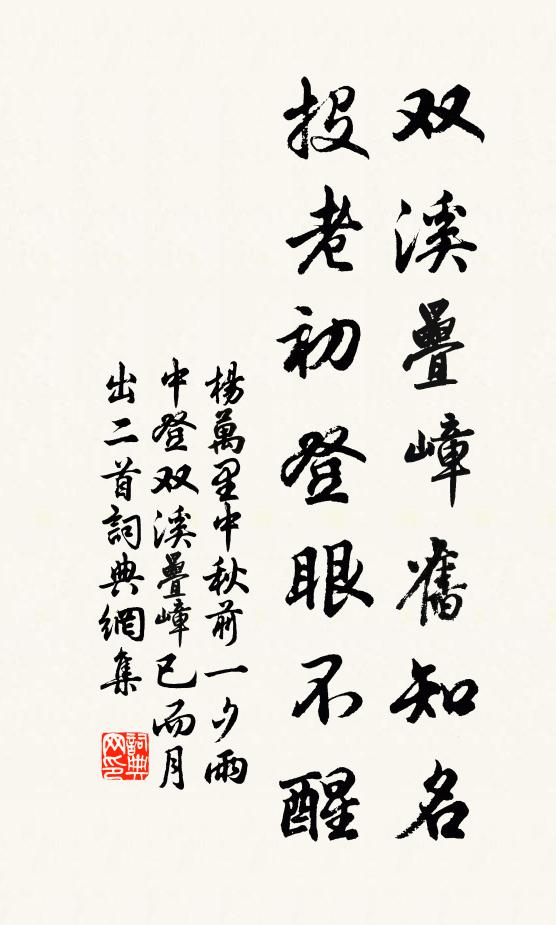 双溪疊嶂舊知名
投老初登眼不醒
楊萬里中秋前一夕雨
中登双溪疊嶂已而月
出二首詞典網集
詞典
网印